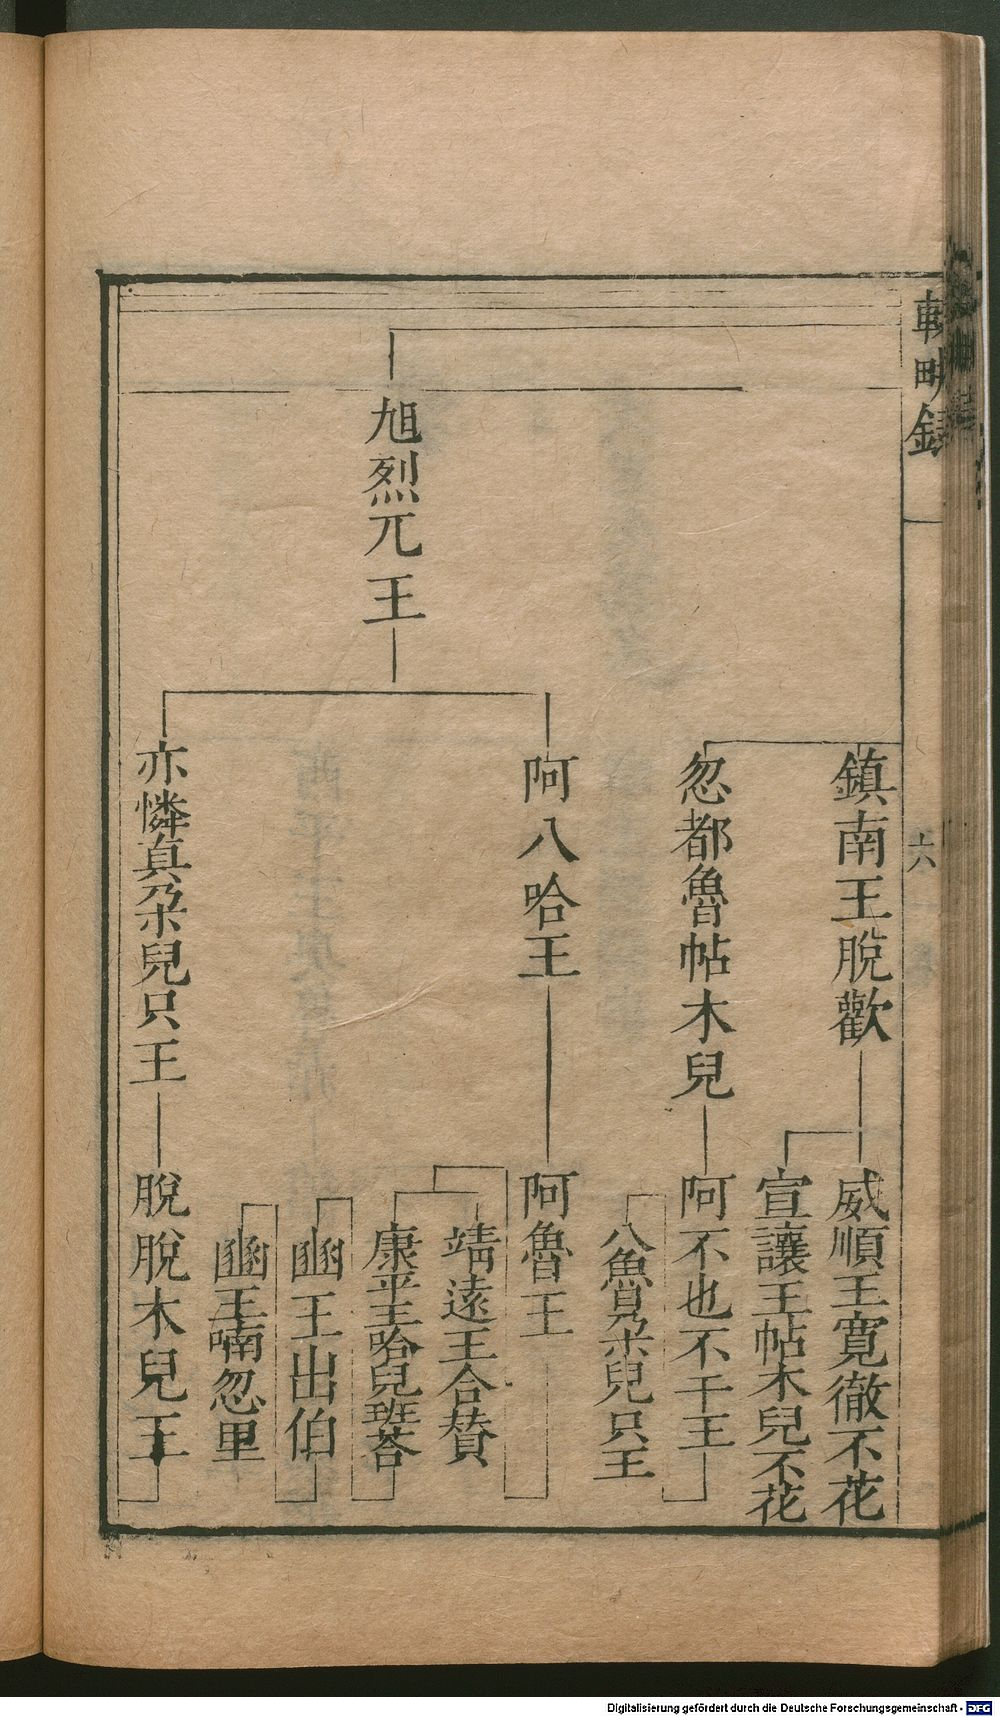 輟畊錄
六
鎮南王脫歡
威順王寬徹不花
宣讓王帖木兒不花
忽都魯帖木兒
阿不也不干王
八魯朶兒只王
旭烈兀王
阿八哈王
阿魯王
靖遠王合賛
康平王哈兒班荅
豳王出伯
豳王喃忽里
亦憐真朶兒只王
脫脫木兒王
Digitalisierung gefördert durch die Deutsche Forschungsgemeinschaft - DFG